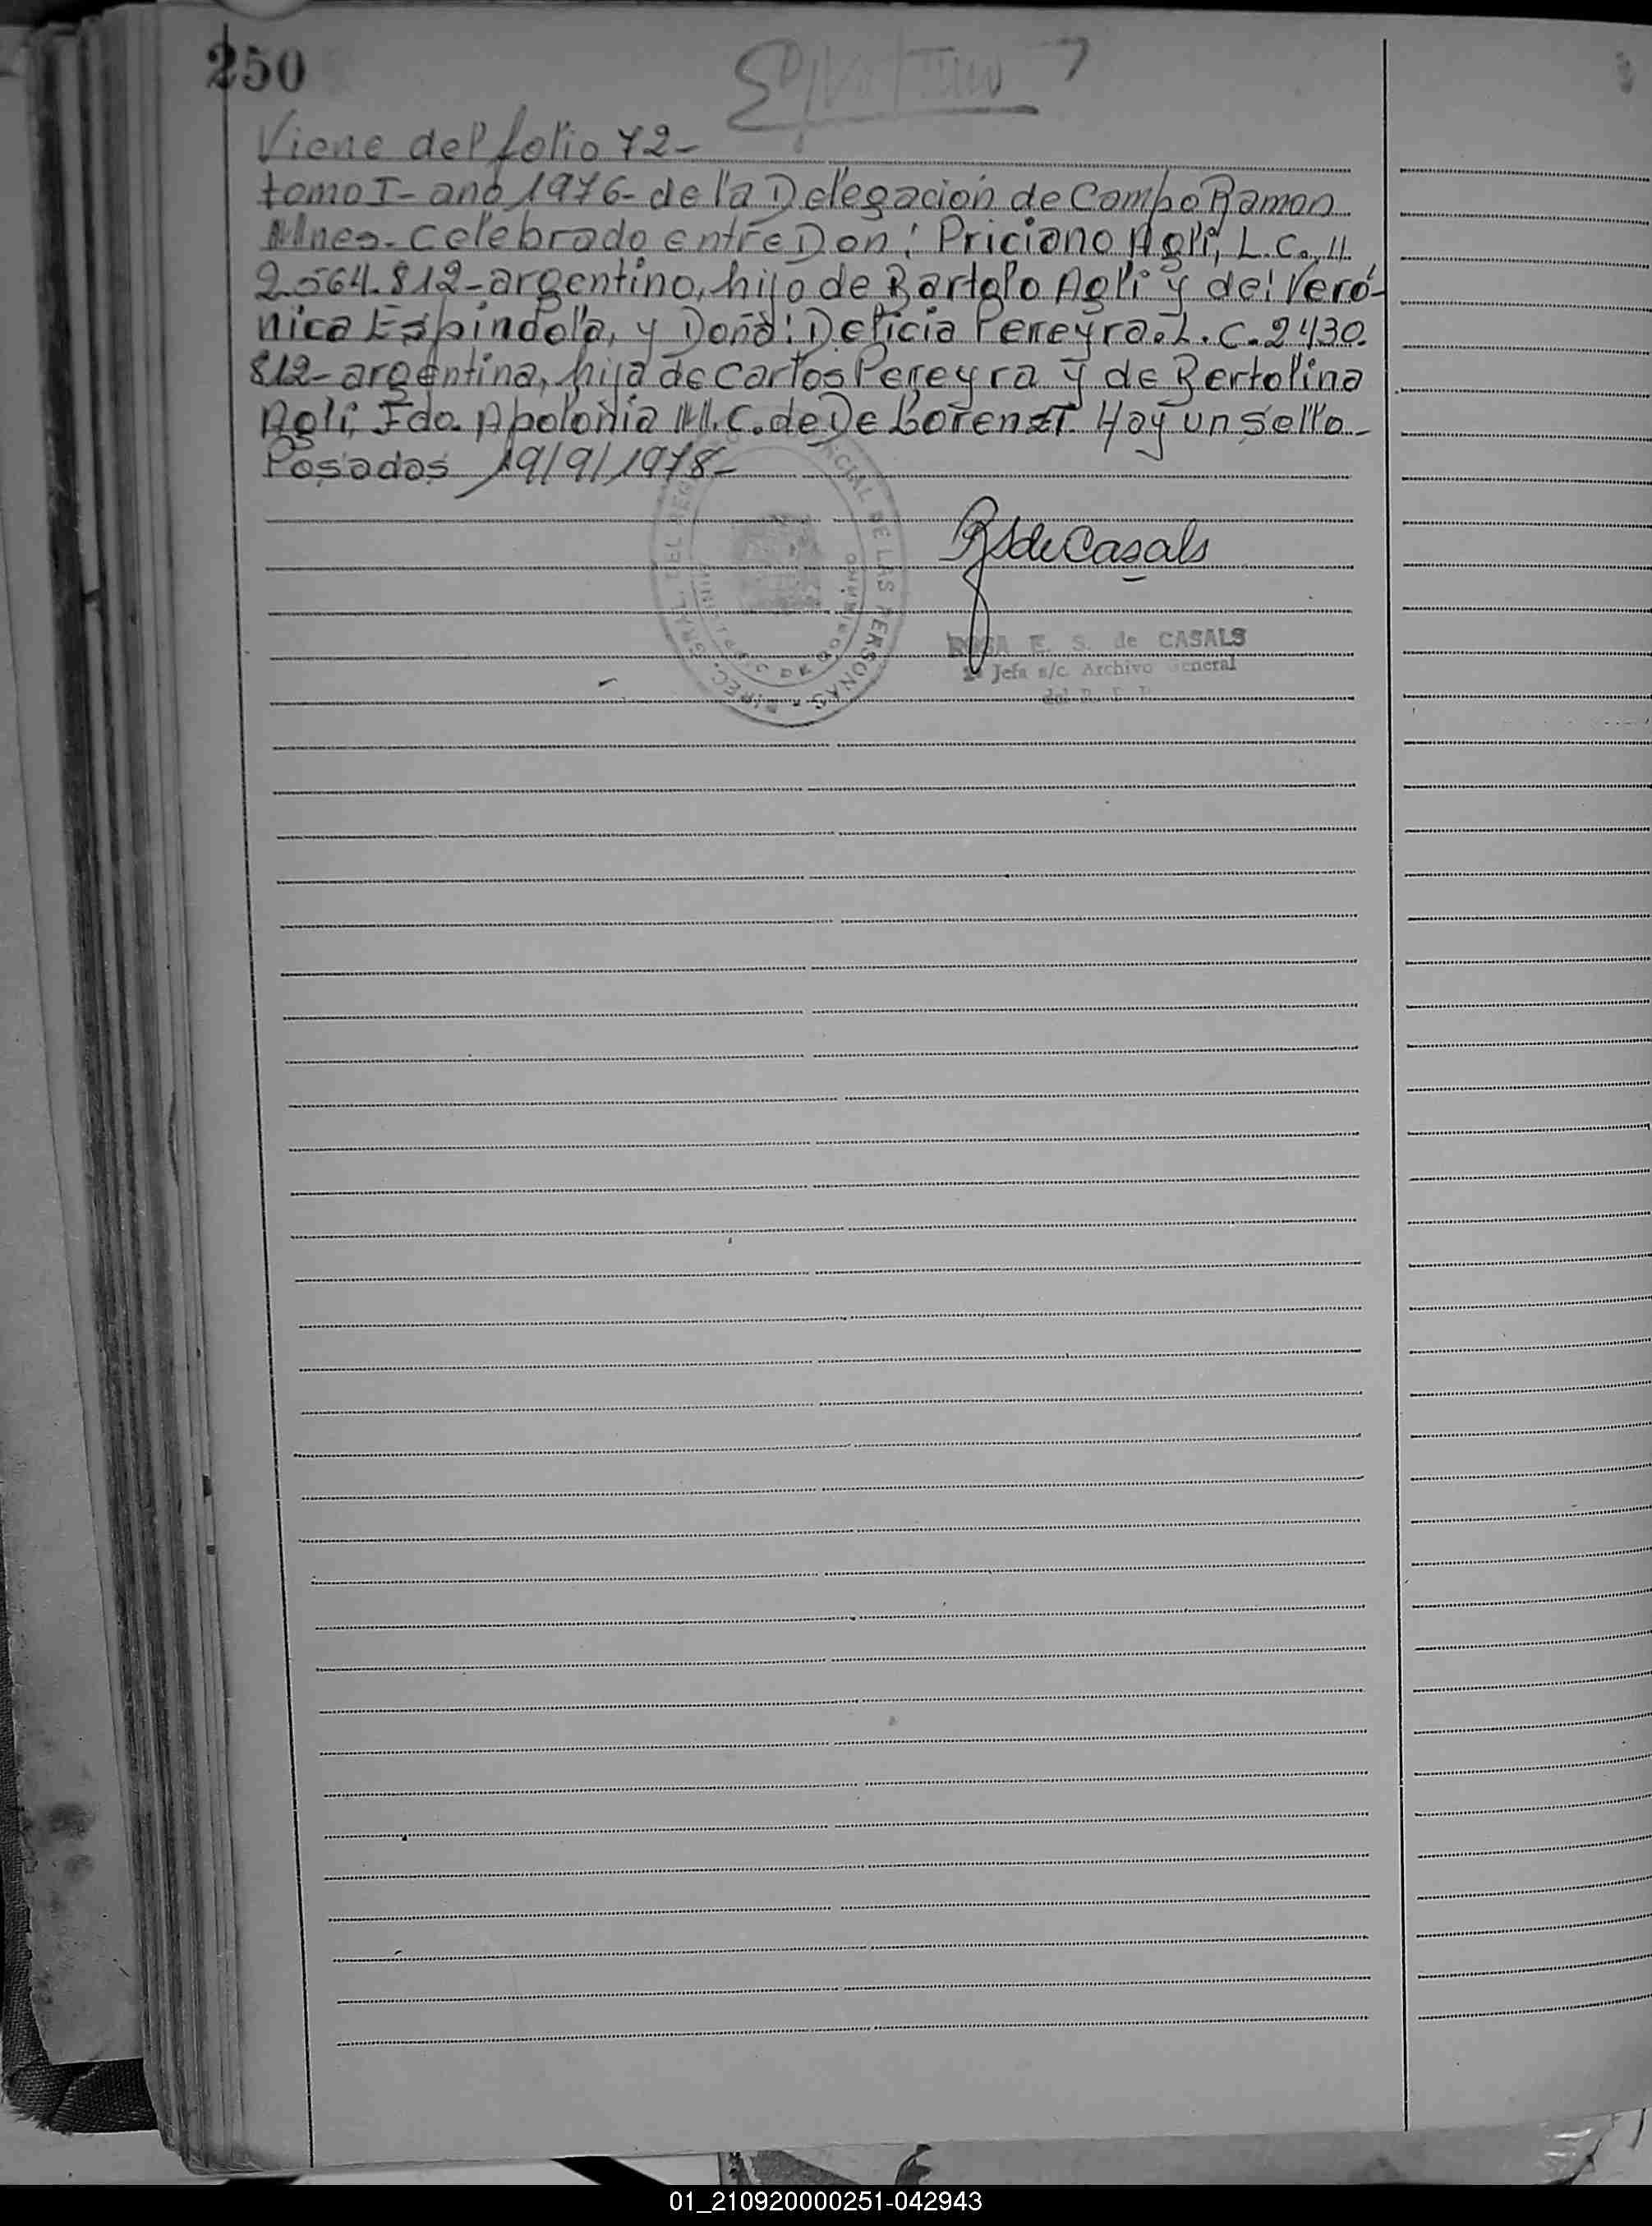 250
Viene del folio 72-
tomo I- año 1976- de la Delegación de Campo Ramon
Mnes. Celebrado entre Don: Priciano Agli, L.C.
2.564.812- argentino, hijo de Bartolo Agli y de: Veró-
nica Espindola, y Doña: Delicia Pereyra. L. C. 2430.
812- argentina, hija de Carlos Pereyra y de Bertolina
Agli, Fdo. Apolonia M. C. de De Lorenzi. Hay un sello-
Posadas 19/9/1978-
de Casals
E. S. de CASALS
Jefa a/c. Archivo General
DE LAS PERSONAS
01_210920000251-042943